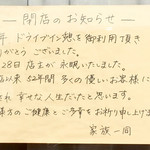 ― 閉店のお知らせ ―
年 ドライブイン憩を御利用頂き
がとう ございました。
28日 店主が永眠いたしました。
以来 52年間 多くの優しいお客様に
され 幸せな人生だったと思います。
様方のご健康とご多幸をお祈り申し上げ
家族一同